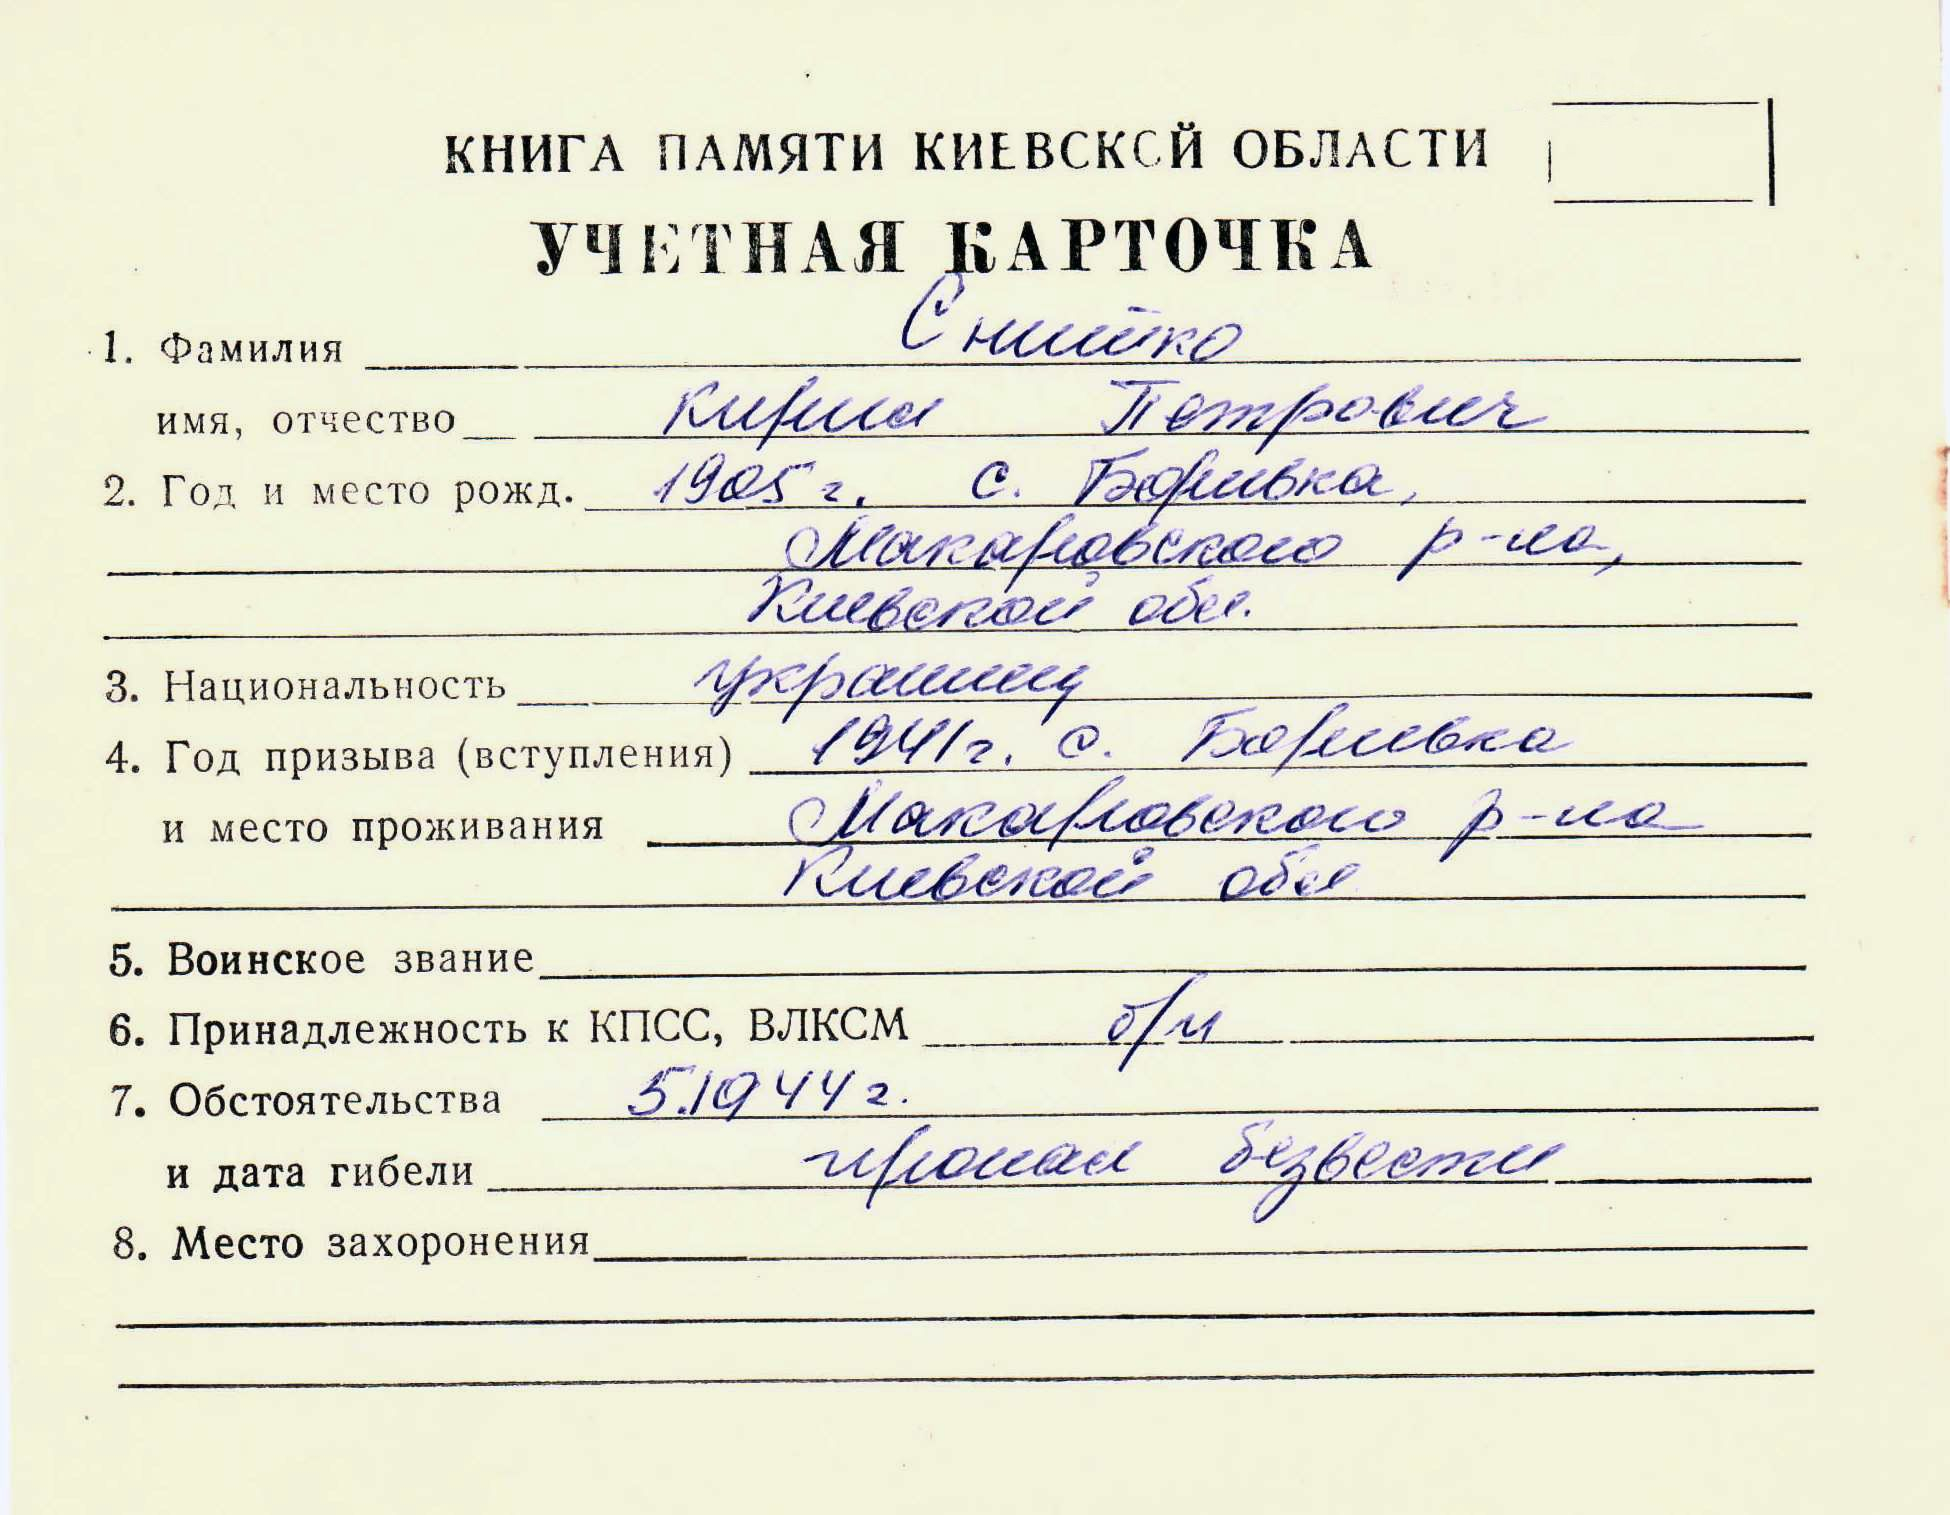 КНИГА ПАМЯТИ КИЕВСКОЙ ОБЛАСТИ
УЧЕТНАЯ КАРТОЧКА
1. Фамилия Снитко
имя, отчество Кирил Петрович
2. Год и место рожд. 1905 г. с. Боривка,
Макаровского р-на,
Киевской обл.
3. Национальность украинец
4. Год призыва (вступления) 1941 г. с. Боривка
и место проживания Макаровского р-на
Киевской обл
5. Воинское звание
6. Принадлежность к КПСС, ВЛКСМ б/п
7. Обстоятельства 5.1944 г.
и дата гибели пропал безвести
8. Место захоронения